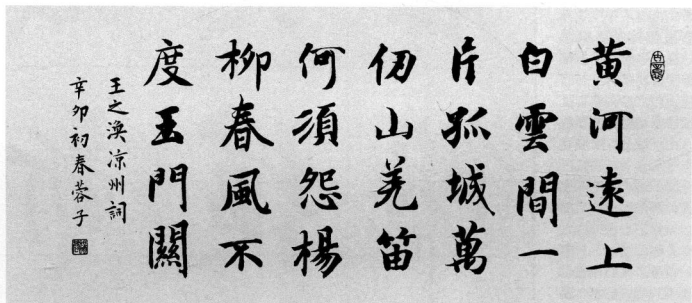 黄河遠上
白雲間一
片孤城萬
仞山羌笛
何須怨楊
柳春風不
度玉門關
王之渙涼州詞
辛卯初春蓉子